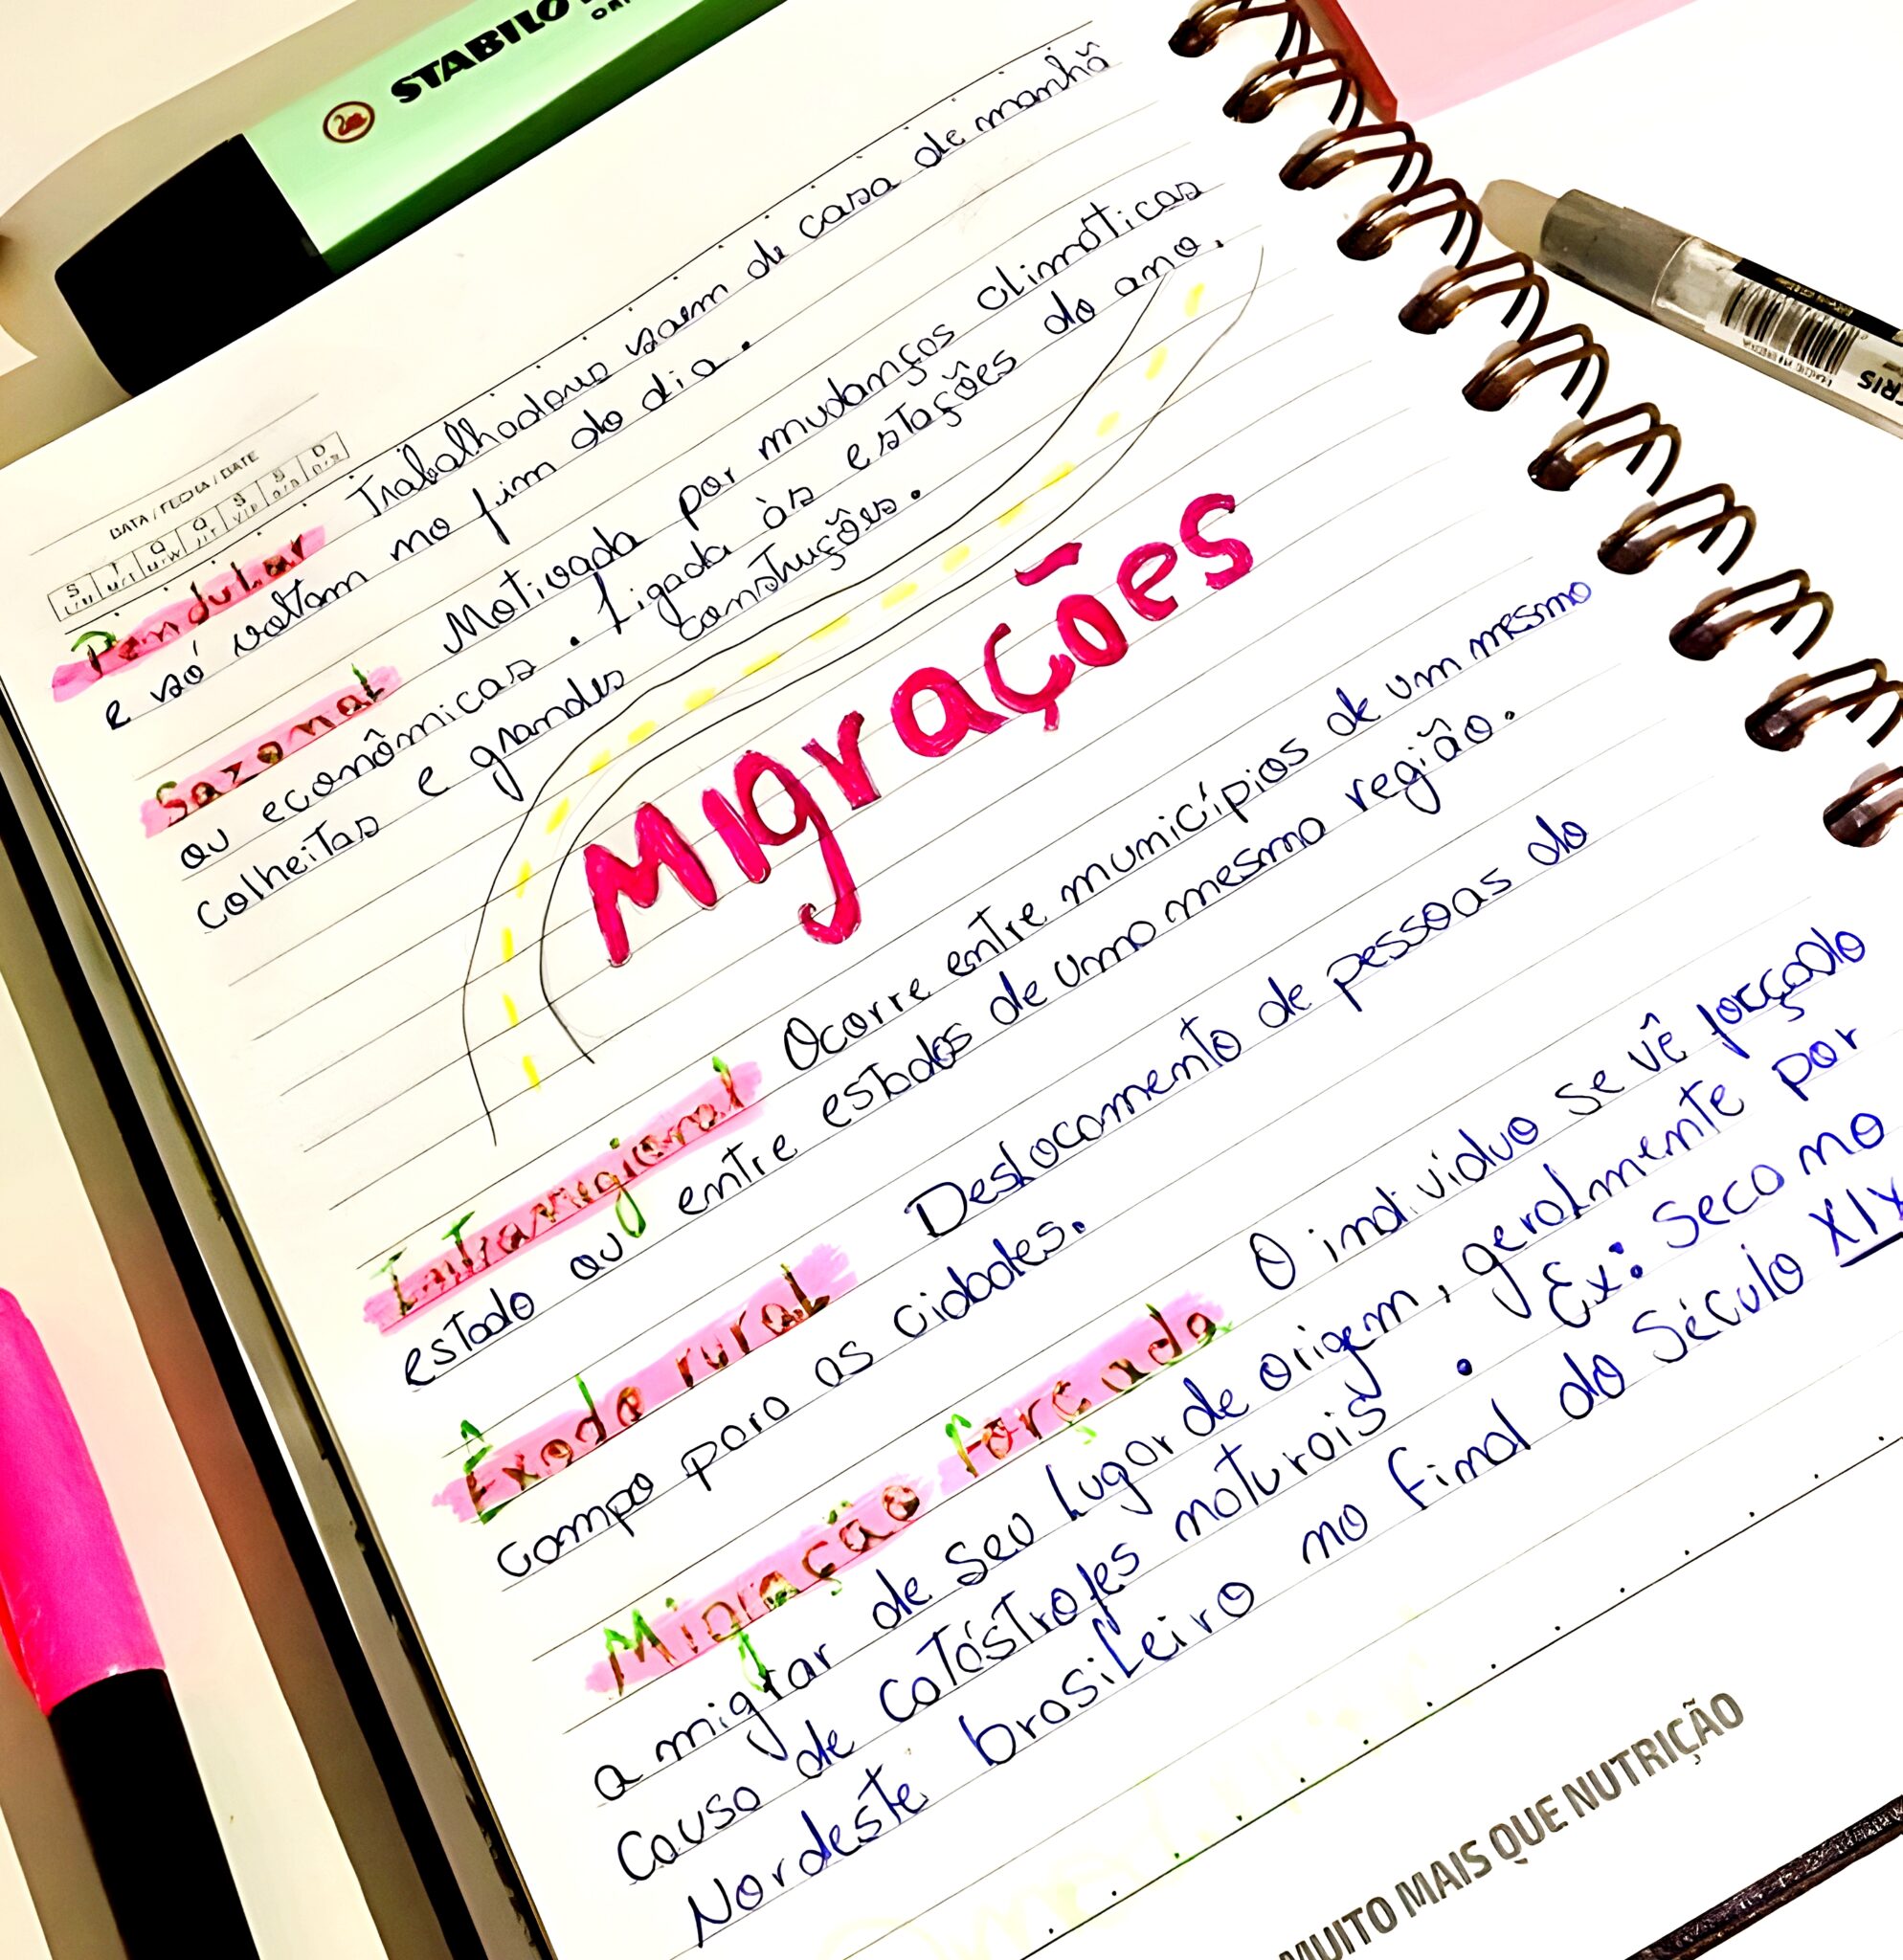 STABILO
DATA / FECHA / DATE
Pendular Trabalhadores saem de casa de manhã
e só voltam no fim do dia.
Sazonal Motivada por mudanças climáticas
ou econômicas. Ligada às estações do ano,
colheitas e grandes construções.
Migrações
Intrarregional Ocorre entre municípios de um mesmo
estado ou entre estados de uma mesma região.
Êxodo rural Deslocamento de pessoas do
campo para as cidades.
Migração forçada O indivíduo se vê forçado
a migrar de seu lugar de origem, geralmente por
causa de catástrofes naturais. Ex: Seca no
Nordeste brasileiro no final do século XIX
MUITO MAIS QUE NUTRIÇÃO